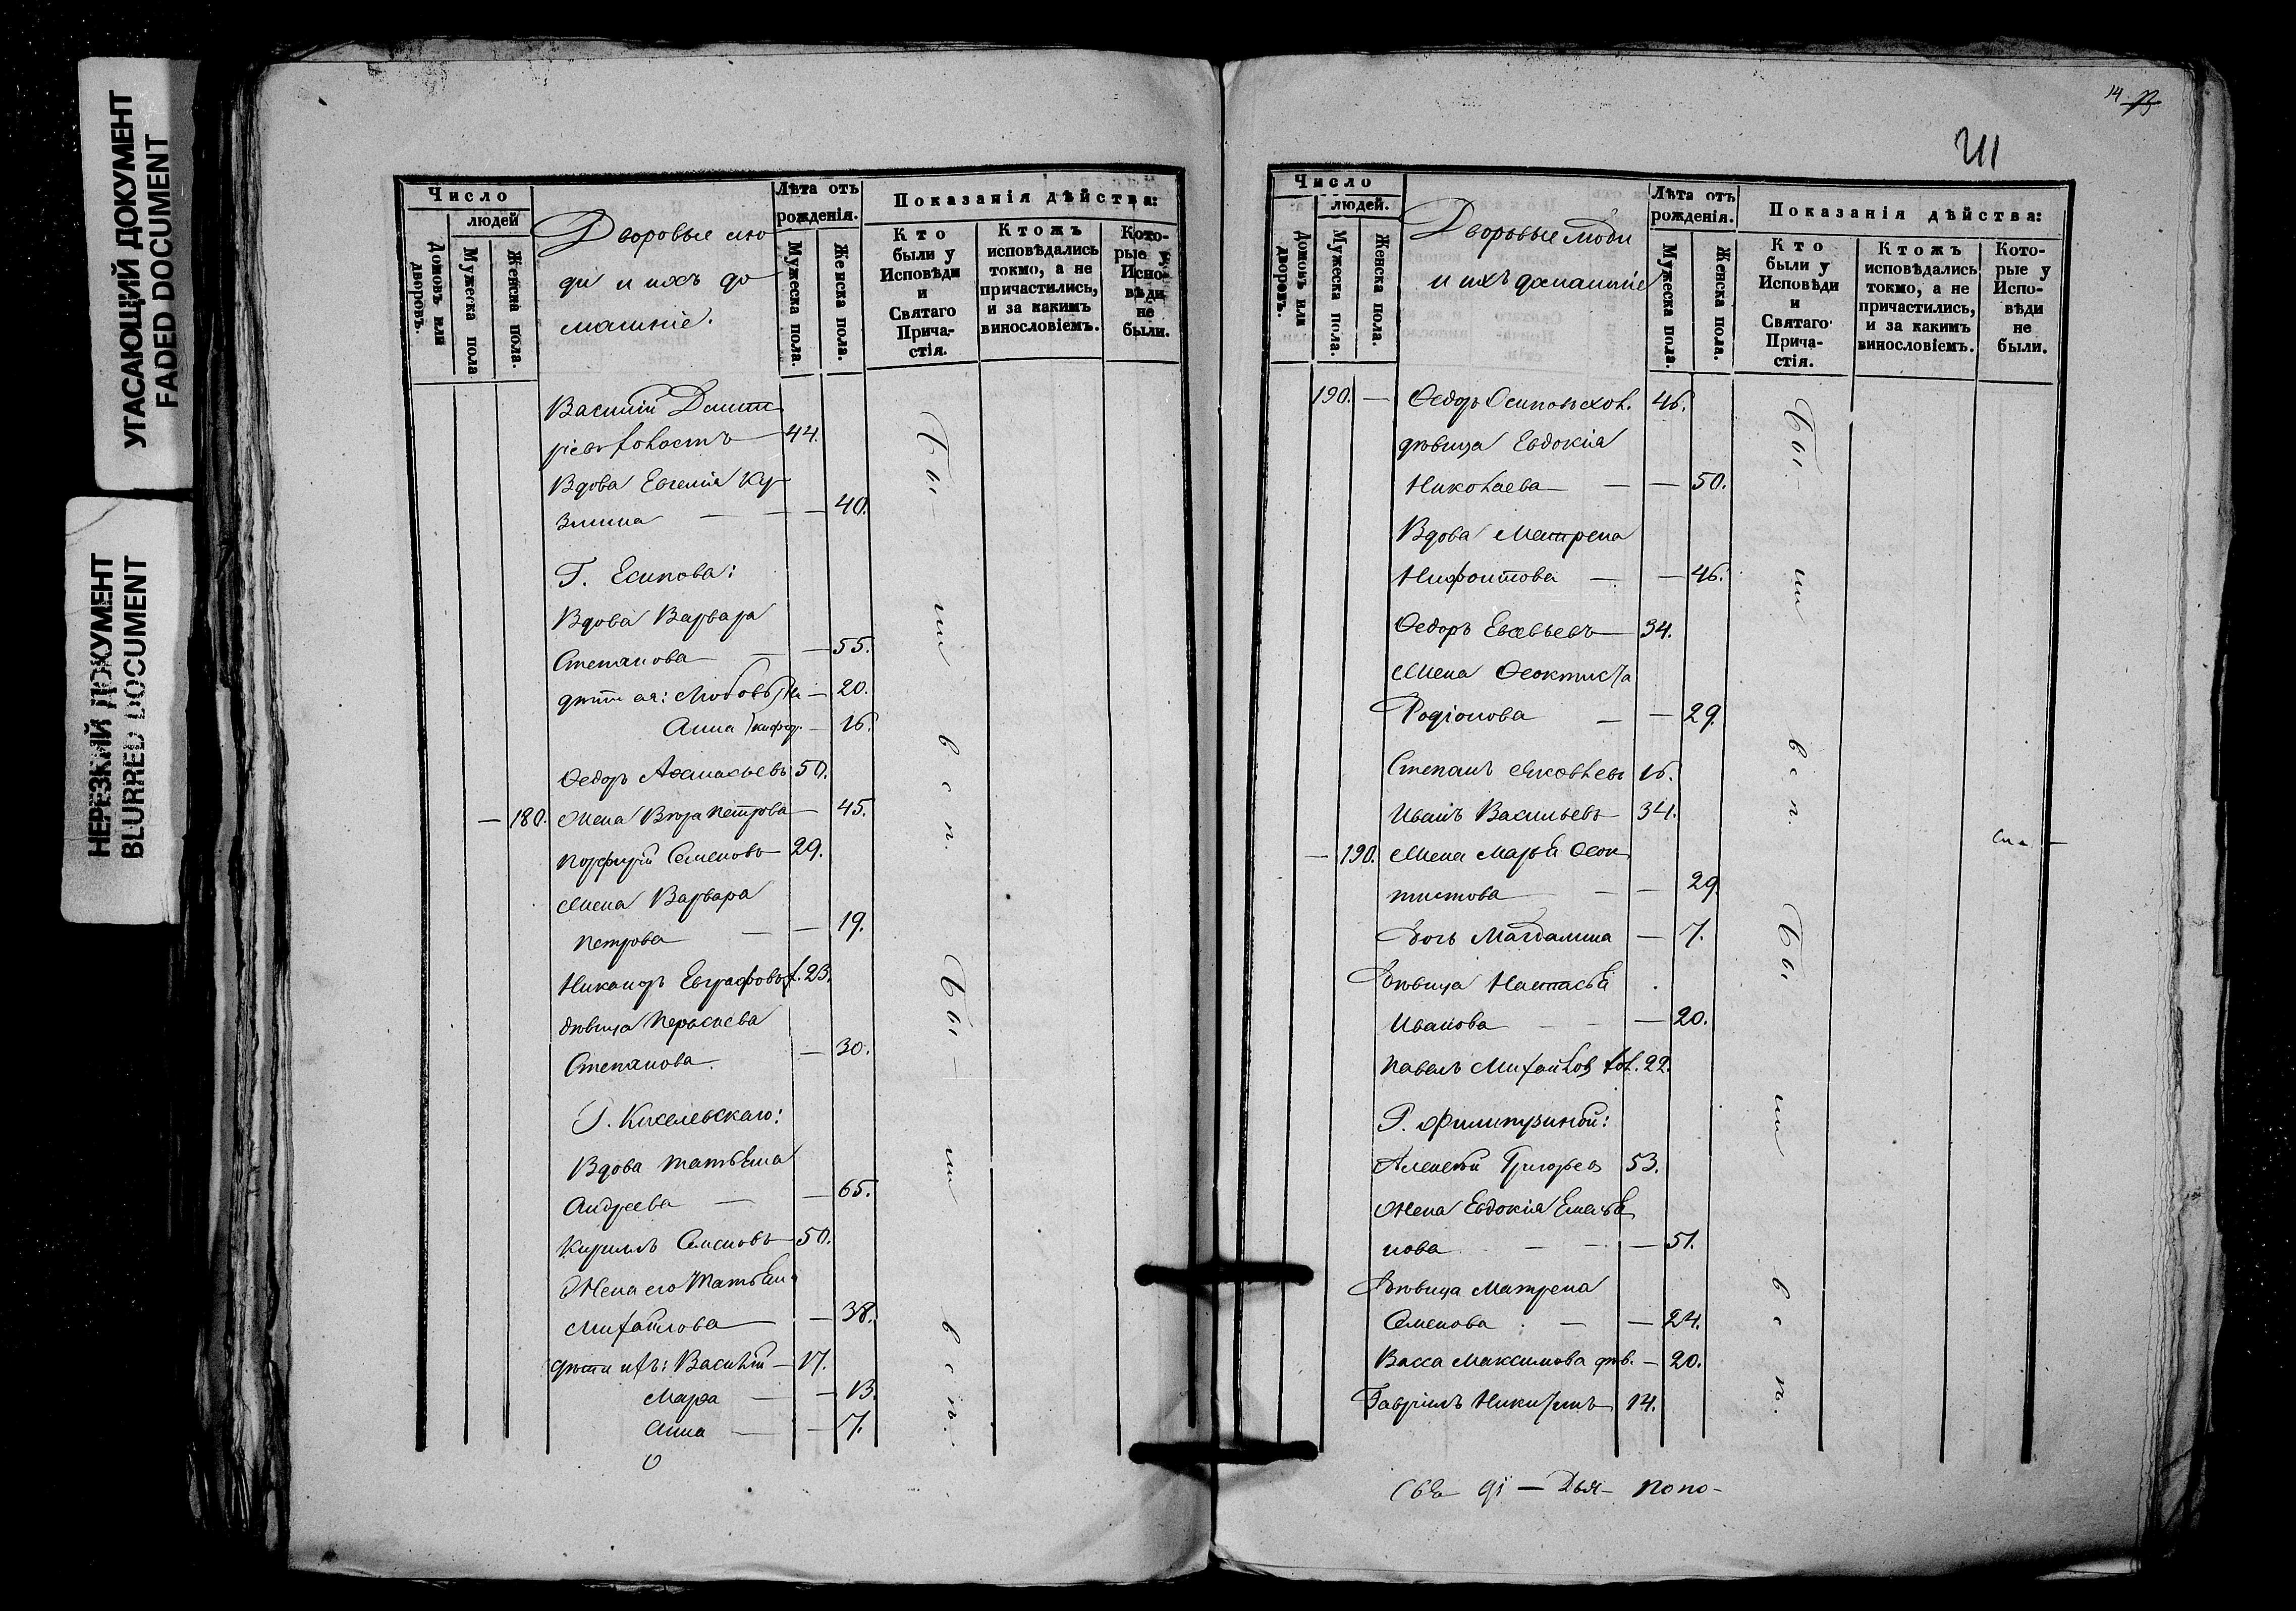 УГАСАЮЩИЙ ДОКУМЕНТ
FADED DOCUMENT
НЕРЕЗКИЙ ДОКУМЕНТ
BLURRED DOCUMENT
Число
людей
Домовъ или дворовъ.
Мужеска пола
Женска пола.
Дворовые лю
ди и ихъ до
машніе.
Лѣта отъ рожденія.
Мужеска пола.
Женска пола.
Показанія дѣйства:
Кто были у Исповѣди и Святаго Прича-стія.
Ктожъ исповѣдались токмо, а не причастились, и за какимъ винословіемъ.
Кото-рые у Испо-вѣди не были.
Василій Димит
ріевъ холостъ 44.
Вдова Евгенія Ку
змина — — 40.
Г. Есипова:
Вдова Варвара
Степанова — — 55.
дѣти ея: Любовь — 20.
Анна — 16.
Ѳедоръ Аѳанасьевъ 50.
— 180. Жена Вѣра Петрова — 45.
Порфирій Семеновъ 29.
Жена Варвара
Петрова — — 19.
Никаноръ Евграфовъ х. 23.
дѣвица Параскева
Степанова. — 30.
Г. Киселевскаго:
Вдова Татьяна
Андреева — — 65.
Кириллъ Семеновъ 50.
Жена его Татьяна
Михайлова — 38.
дѣти ихъ: Василій — 17.
Марѳа — — 13.
Анна — — 7.
Бы — ли всп. Бы — ли всп.
14
211
Число
людей.
Домовъ или дворовъ.
Мужеска пола.
Женска пола.
Дворовые люди
и ихъ домашніе
Лѣта отъ рожденія.
Мужеска пола.
Женска пола.
Показанія дѣйства:
Кто были у Исповѣди и Святаго Прича-стія.
Ктожъ исповѣдались токмо, а не причастились, и за какимъ винословіемъ.
Кото-рые у Испо-вѣди не были.
190. — Ѳедоръ Осиповъ хол. 46.
дѣвица Евдокіа
Николаева — — 50.
Вдова Матрена
Нифонтова — — 46.
Ѳедоръ Евсевьевъ 34.
Жена Ѳеоктиста
Родіонова — — 29.
Степанъ Яковлевъ 16.
Иванъ Васильевъ 34.
— 190. Жена Марья Ѳеок
тистова — — 29.
Дочь Магдалина — 7.
Дѣвица Настасья
Иванова — — 20.
Павелъ Михайловъ хол. 22.
Г. Филитузиной:
Алексѣй Григорьев 53.
Жена Евдокіа Емелья
нова — — 51.
Дѣвица Матрена
Семенова — — 24.
Васса Максимова дѣв. — 20.
Гавріилъ Никитинъ 14.
Бы — ли всп. Бы ли всп.
Свя — ді — Дья — поно —